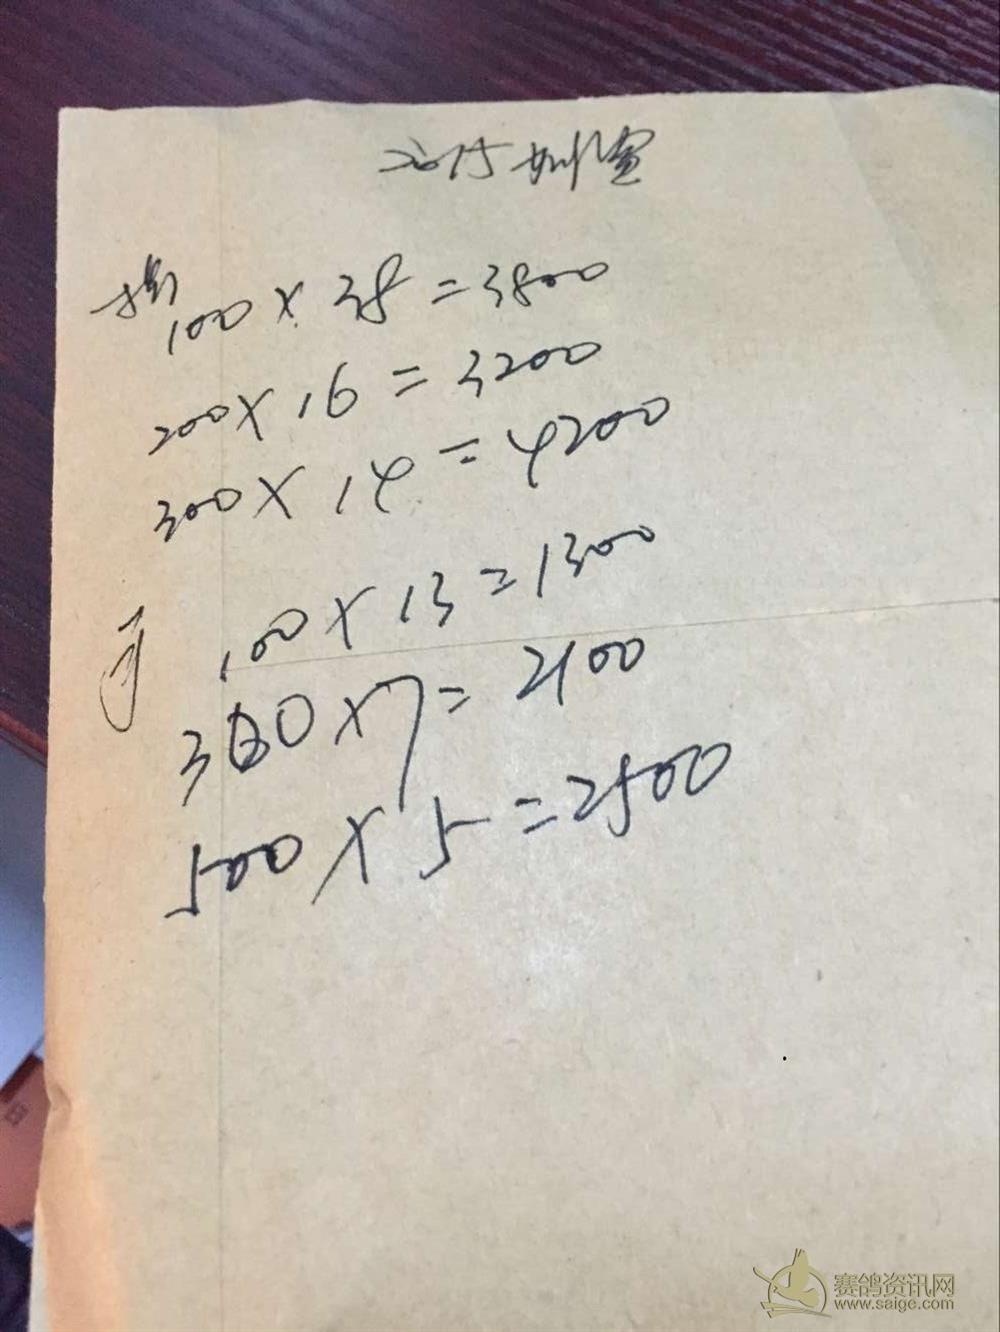 2015
100 × 38 = 3800
200 × 16 = 3200
300 × 14 = 4200
100 × 13 = 1300
300 × 7 = 2100
500 × 5 = 2500
赛鸽资讯网
www.saige.com